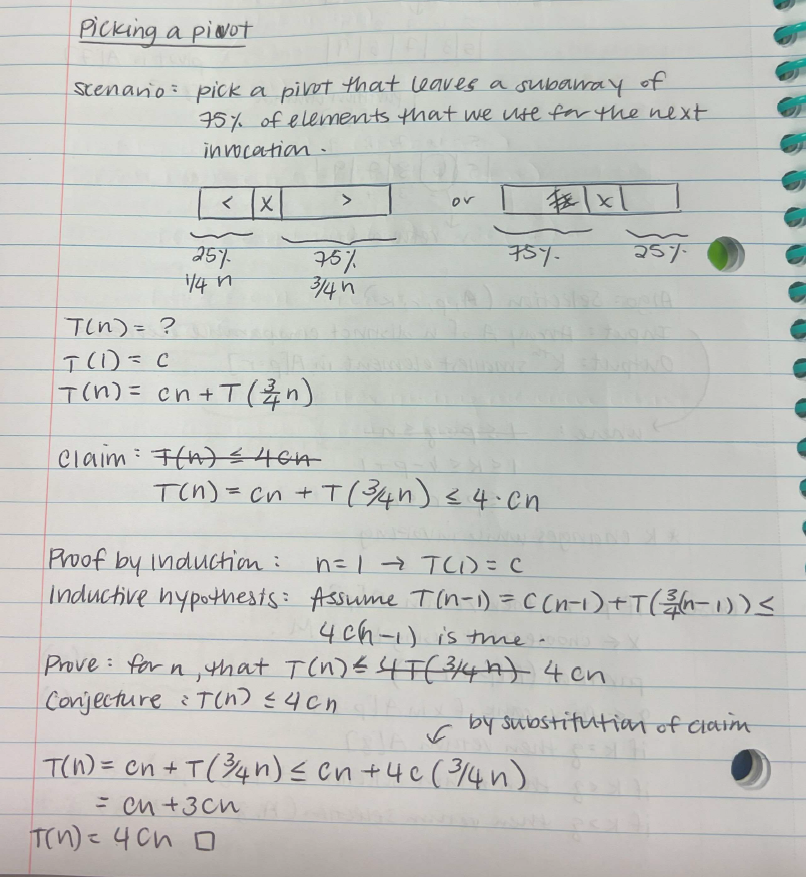 Picking a pivot
scenario: pick a pivot that leaves a subarray of
75% of elements that we use for the next
invocation.
< X > or X
25% 75% 75% 25%
1/4 n 3/4 n
T(n) = ?
T(1) = C
T(n) = cn + T(3/4 n)
Claim: T(n) ≤ 4cn
T(n) = cn + T(3/4n) ≤ 4·cn
Proof by induction: n=1 → T(1) = C
Inductive hypothesis: Assume T(n-1) = C(n-1)+T(3/4(n-1)) ≤
4C(n-1) is true.
Prove: for n, that T(n) ≤ 4T(3/4 n) 4cn
Conjecture: T(n) ≤ 4cn
by substitution of claim
T(n) = cn + T(3/4n) ≤ cn + 4c(3/4n)
= cn + 3cn
T(n) = 4cn □